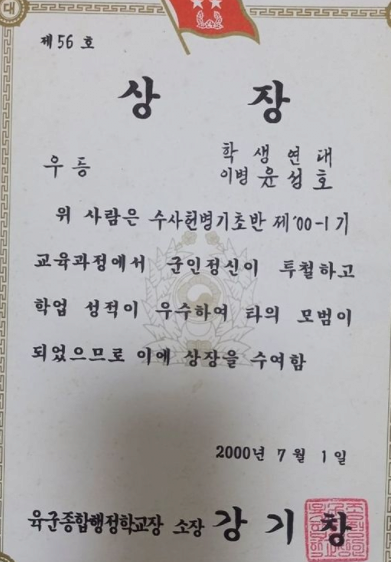 대
제 56 호
상 장
우 등
학 생 연 대
이병 윤 성 호
위 사람은 수사헌병기초반 제'00-1기
교육과정에서 군인정신이 투철하고
학업 성적이 우수하여 타의 모범이
되었으므로 이에 상장을 수여함
2000년 7월 1일
육군종합행정학교장 소장 강 기 창